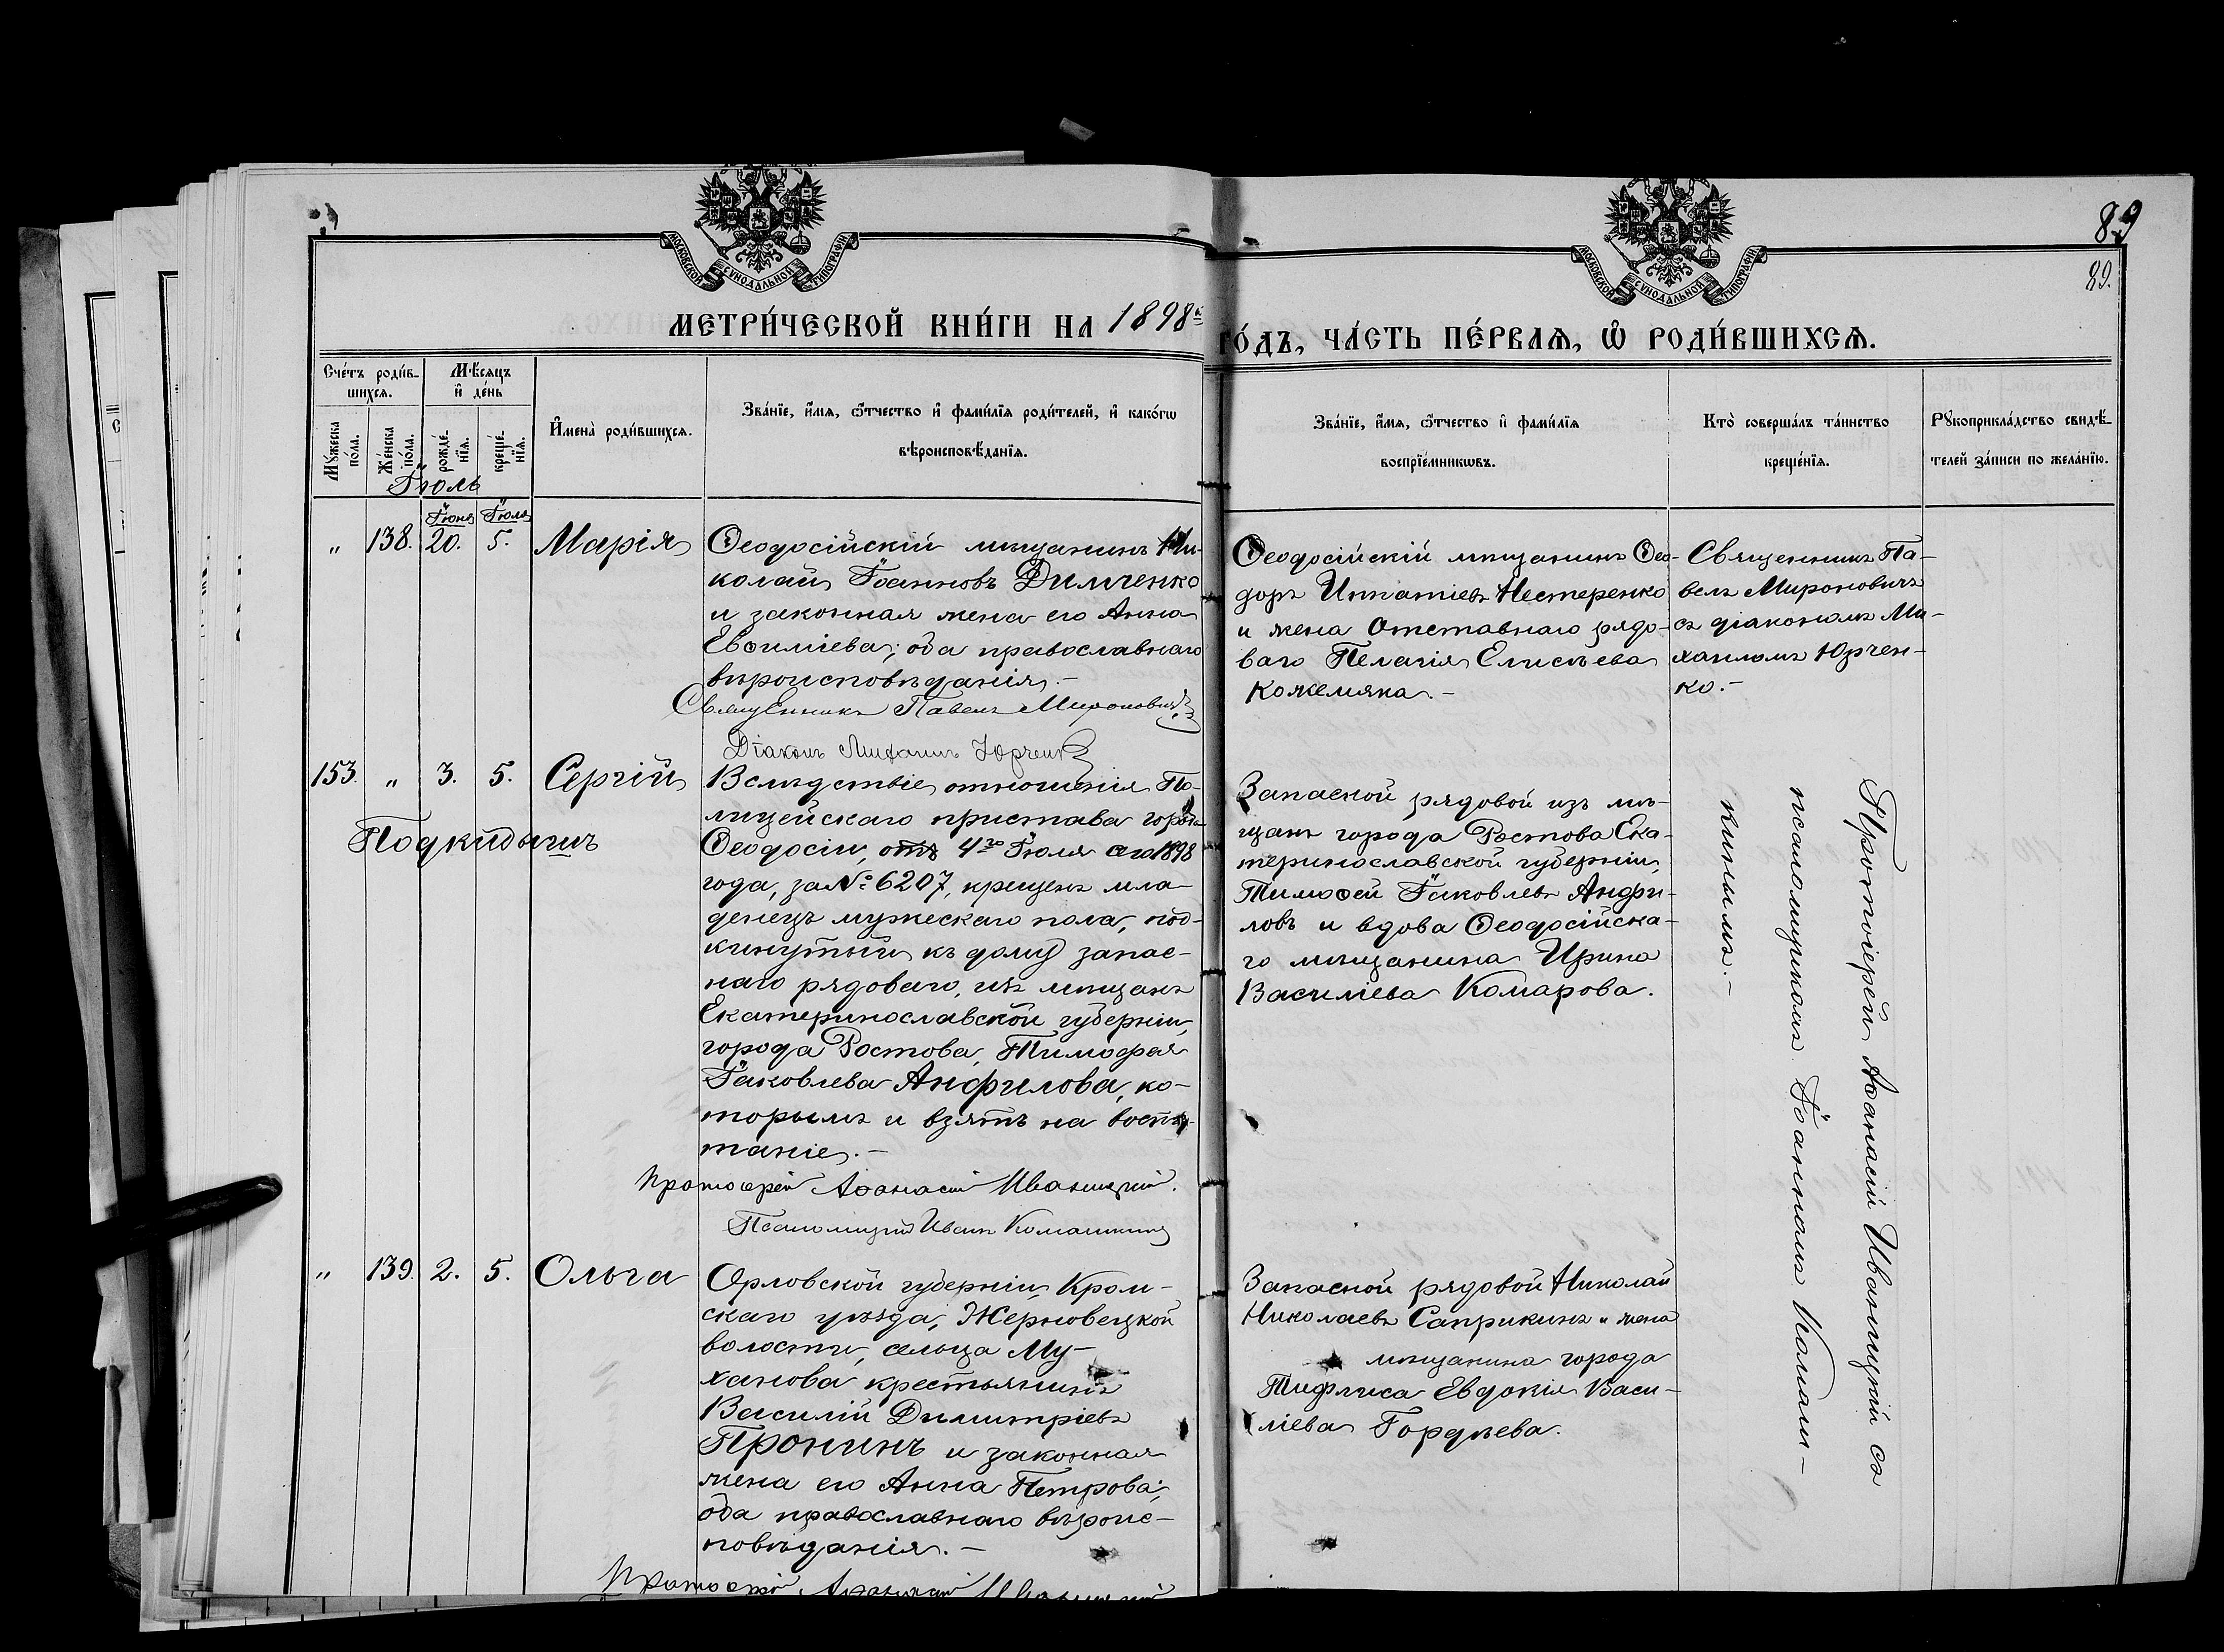 МОСКОВСКОЙ СѴНОДАЛЬНОЙ ТИПОГРАФІИ
МОСКОВСКОЙ СѴНОДАЛЬНОЙ ТИПОГРАФІИ
89
89.
МЕТРИ́ЧЕСКОЙ КНИ́ГИ НА 1898й
ГО́ДЪ, ЧА́СТЬ ПЕ́РВАѦ, Ѽ РОДИ́ВШИХСѦ.
Сче́тъ роди́в-
шихсѧ.
Мѣ́сяцъ
и҆ де́нь
Му́жеска
по́ла.
Же́нска
по́ла.
рожде́-
нїѧ.
креще́-
нїѧ.
И҆мена̀ роди́вшихсѧ.
Зва́нїе, и҆́мѧ, ѻ҆́тчество и҆ фами́лїѧ роди́телей, и҆ како́гѡ
вѣроисповѣ́данїѧ.
Зва́нїе, и҆́мѧ, ѻ҆́тчество и҆ фами́лїѧ
воспрїе́мникѡвъ.
Кто̀ соверша́лъ та́инство
креще́нїѧ.
Рꙋкоприкла́дство свидѣ́-
телей за́писи по жела́нїю.
Іюль
Іюня Іюля
„ 138. 20. 5. Марія
Ѳеодосійскій мѣщанинъ Ни-
колай Іоанновъ Димченко
и законная жена его Анна
Евѳиміева; оба православнаго
вѣроисповѣданія.-
Священникъ Павелъ Мироновичъ
Діаконъ Михаилъ Юрченко
Ѳеодосійскій мѣщанинъ Ѳео-
доръ Игнатіевъ Нестеренко
и жена отставнаго рядо-
ваго Пелагія Елисѣева
Кожемяка.-
Священникъ Па-
велъ Мироновичъ
съ діакономъ Ми-
хаиломъ Юрчен-
ко.-
153. „ 3. 5. Сергій
Подкидышъ
Вслѣдствіе отношенія По-
лицейскаго пристава города
Ѳеодосіи, отъ 4го Іюля сего 1898
года, за № 6207, крещенъ мла-
денецъ мужескаго пола, под-
кинутый къ дому запас-
наго рядоваго, изъ мѣщанъ
Екатеринославской губерніи,
города Ростова, Тимоѳея
Іаковлева Анфилова, ко-
торымъ и взятъ на воспи-
таніе.-
Протоіерей Аѳанасій Иваницкій.
Псаломщикъ Иванъ Комашкинъ
Запасной рядовой изъ мѣ-
щанъ города Ростова Ека-
теринославской губерніи,
Тимоѳей Іаковлевъ Анфи-
ловъ и вдова Ѳеодосійска-
го мѣщанина Ирина
Василіева Комарова.
Протоіерей Аѳанасій Иваницкій съ
псаломщикомъ Іоанномъ Комаш-
кинымъ.-
„ 139. 2. 5. Ольга
Орловской губерніи, Кром-
скаго уѣзда, Жерновецкой
волости, сельца Му-
ханова крестьянинъ
Василій Димитріевъ
Пронинъ и законная
жена его Анна Петрова;
оба православнаго вѣроис-
повѣданія.-
Протоіерей Аѳанасій Иваницкій
Запасной рядовой Николай
Николаевъ Саприкинъ и жена
мѣщанина города
Тифлиса Евдокія Васи-
ліева Гордѣева.